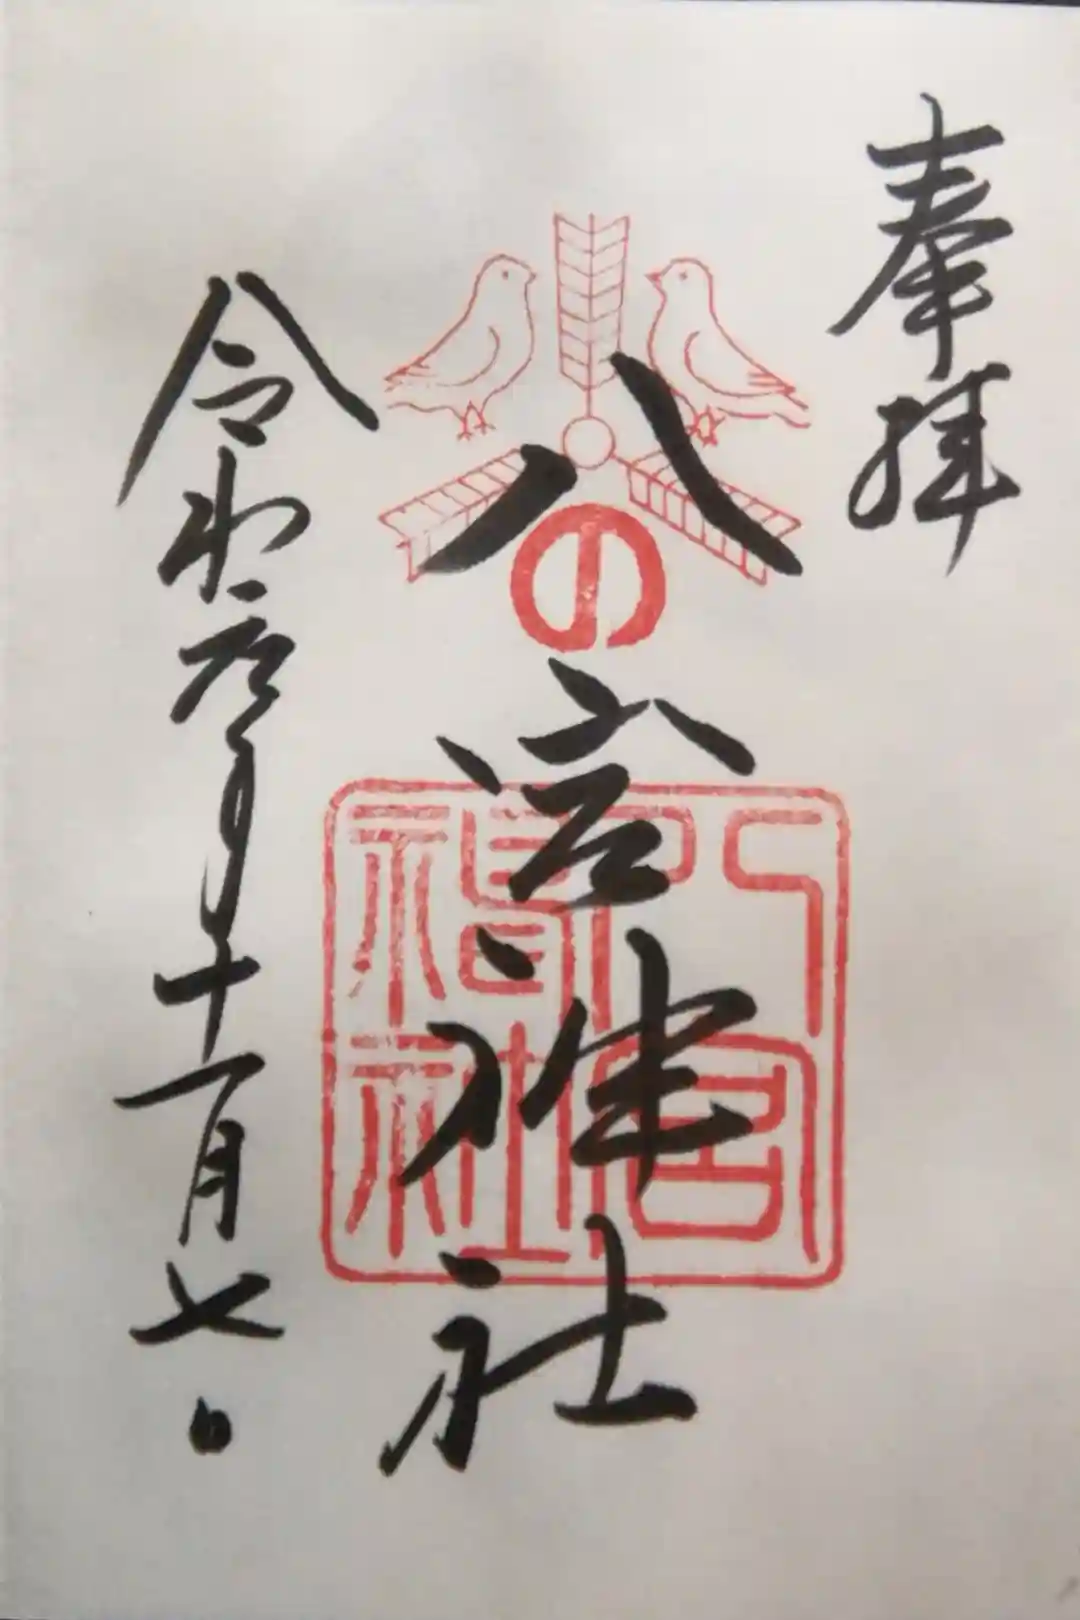 奉拝
八の宮神社
八宮神社
令和元年十一月七日